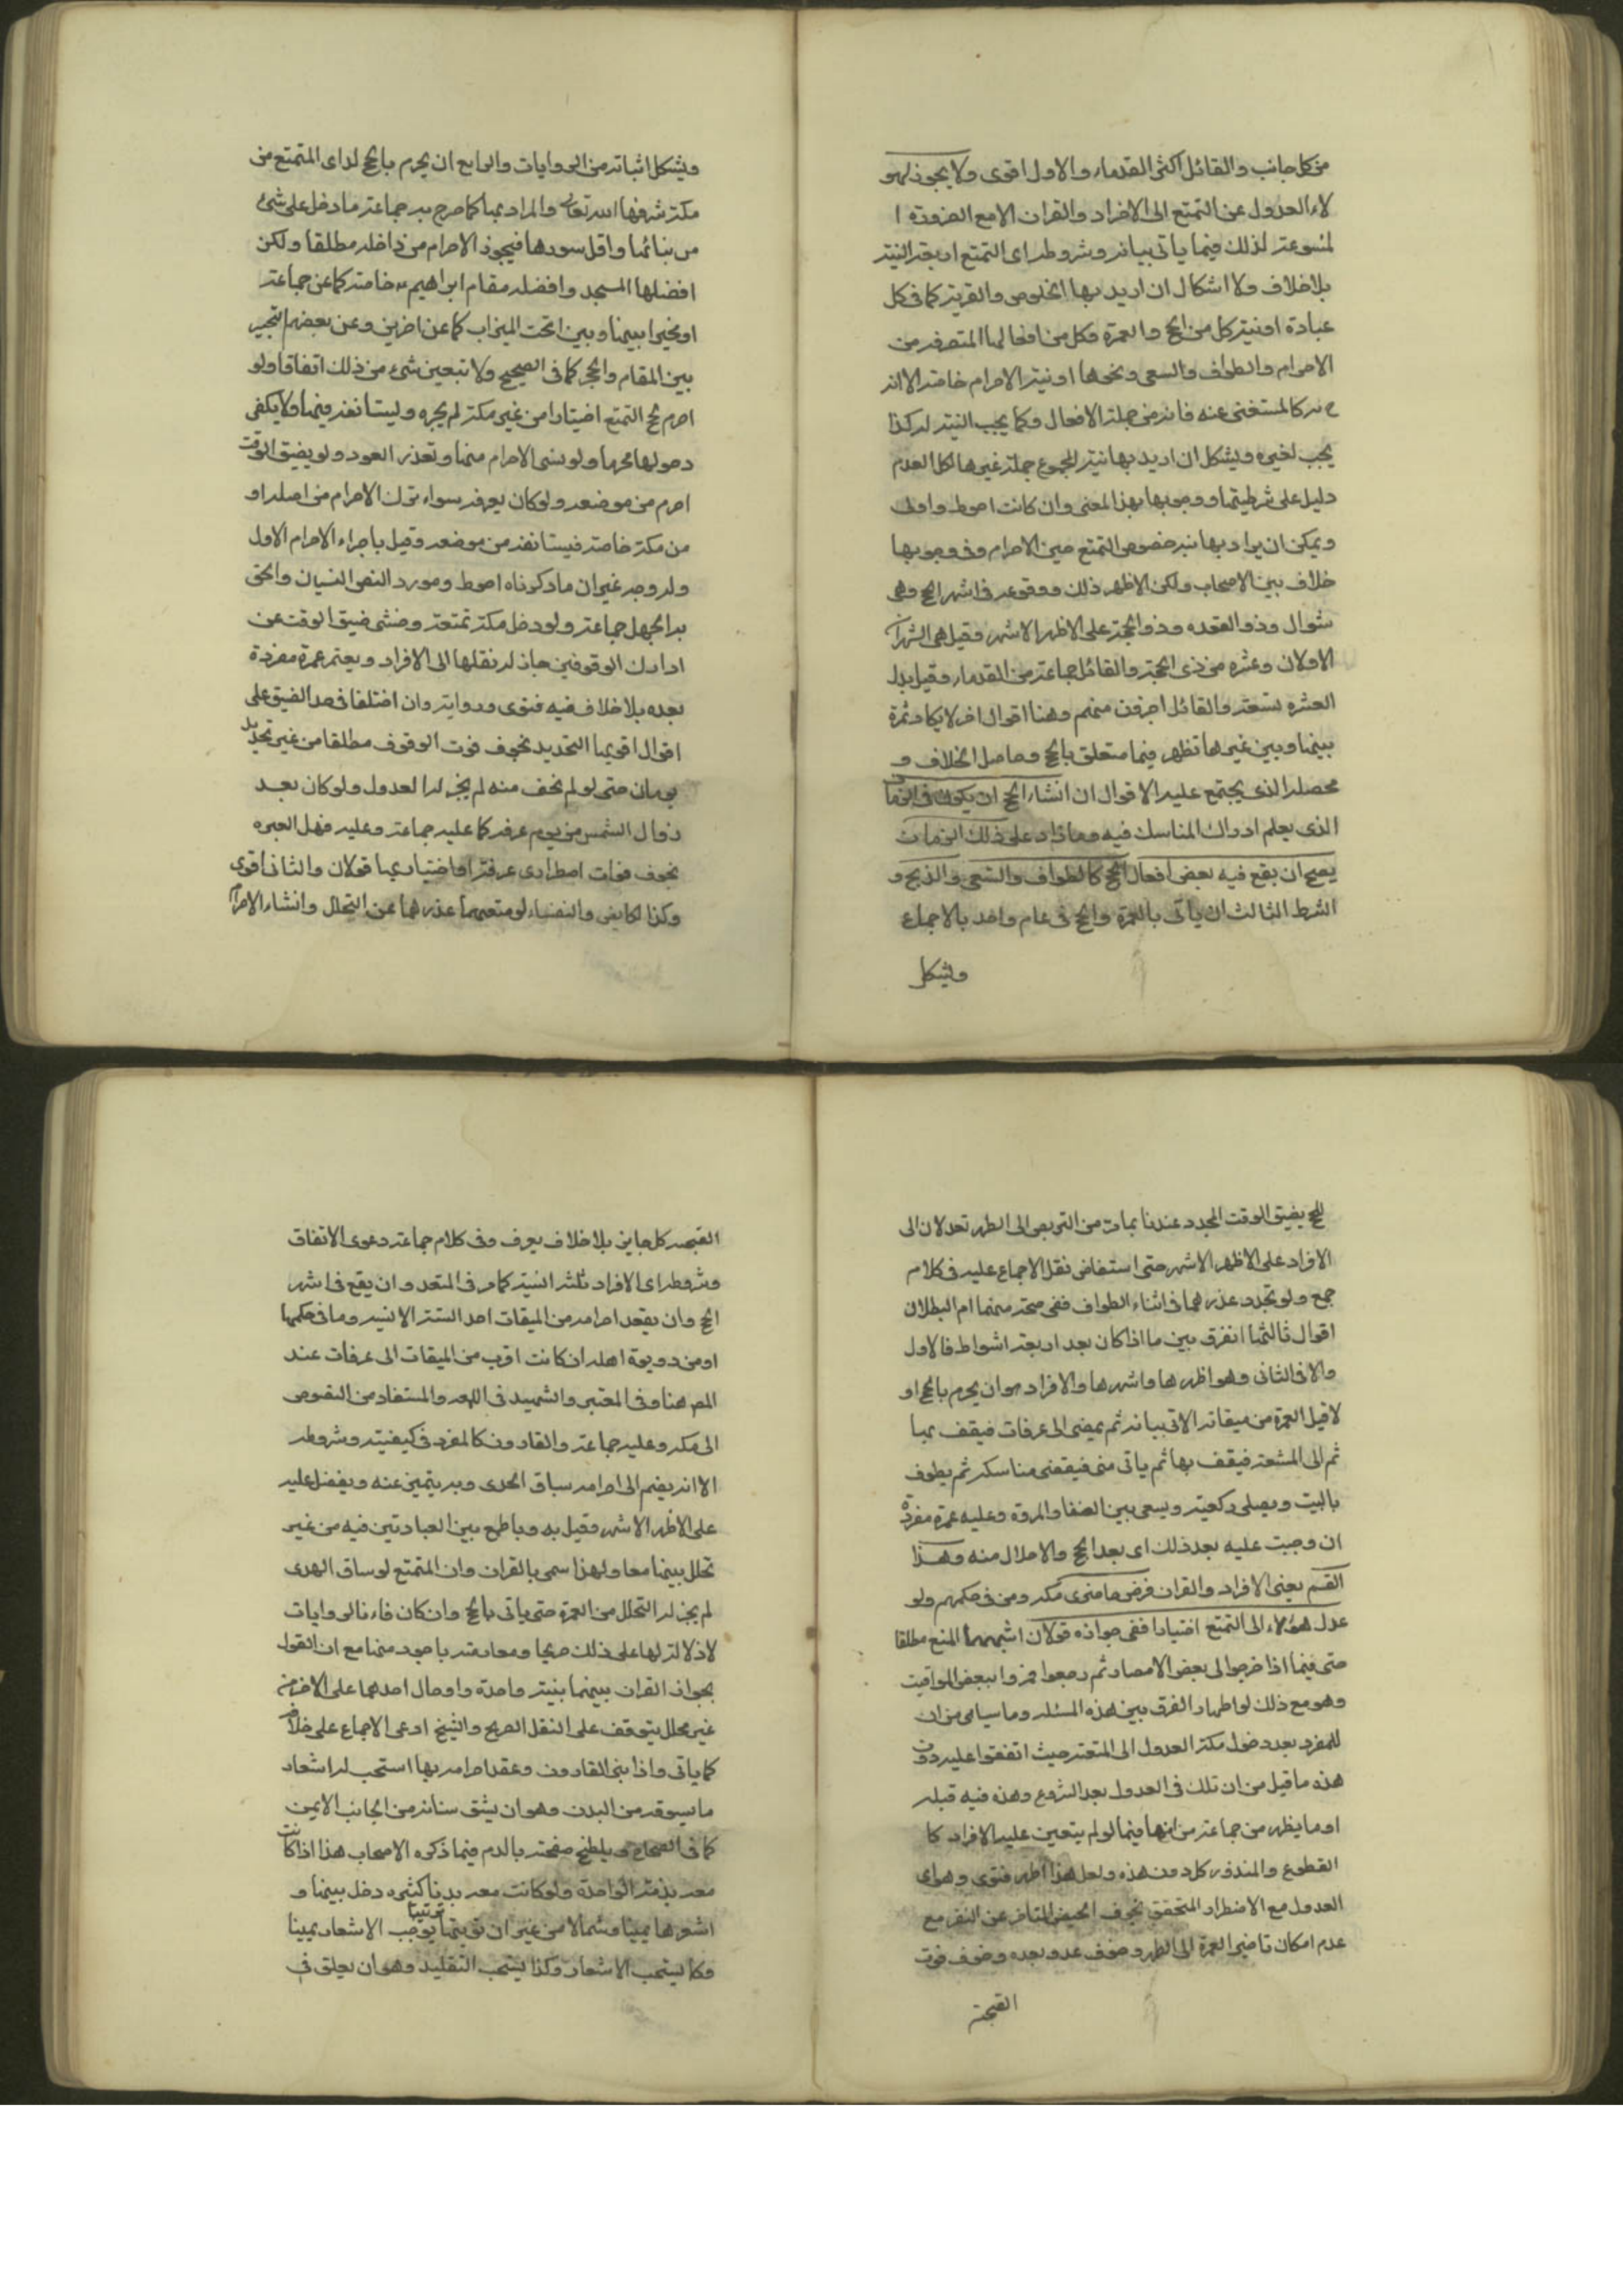 من كل جانب والقائل اكثر القدماء والاول اقوى ولا يجوز لهو
لاء العدول عن التمتع الى الافراد والقران الا مع الضرورة ا
لمسوغة لذلك فيما ياتى بيانه وشروطه اى التمتع اربعة النية
بلا خلاف ولا اشكال ان اريد بها الخلوص والقربة كما فى كل
عبادة او نية كل من الحج والعمرة وكل من افعالهما المتفرقة من
الاحرام والطواف والسعى ونحوها او نية الاحرام خاصة الا انه
ح كالمستغنى عنه فانه من جملة الافعال وكما يجب النية له كذا
يجب لغيره ويشكل ان اريد بها نية المجموع جملة غير ما لكل لعدم
دليل على شرطيتها ووجوبها بهذا المعنى وان كانت احوط واولى
ويمكن ان يراد بها نية خصوص التمتع حين الاحرام وفى وجوبها
خلاف بين الاصحاب ولكن الاظهر ذلك ووقوعه فى اشهر الحج وهى
شوال وذو القعده وذو الحجة على الاظهر الاشهر وقيل هى الشهران
الاولان وعشره من ذى الحجة والقائل جماعة من القدماء وقيل بدل
العشره تسعة والقائل اخرون منهم وهنا اقوال اخر لا يكاد ثمرة
بينها وبين غيرها تظهر فيما متعلق بالحج وحاصل الخلاف و
محصله الذى يجتمع عليه الاقوال ان انشاء الحج ان يكون فى الزمان
الذى يعلم ادراك المناسك فيه وما زاد على ذلك الزمان
يصح ان يقع فيه بعض افعال الحج كالطواف والسعى والذبح و
الشرط الثالث ان ياتى بالعمرة والحج فى عام واحد بالاجماع
ويشكل
ويشكل اثباته من الروايات والرابع ان يحرم بالحج له اى المتمتع من
مكة شرفها الله تعالى والمراد بها كما صرح به جماعة ما دخل على شئ
من بنائها واقل سورها فيجوز الاحرام من داخله مطلقا ولكن
افضلها المسجد وافضله مقام ابراهيم ع خاصة كما عن جماعة
او مخيرا بينها وبين تحت الميزاب كما عن اخرين وعن بعضهم التخيير
بين المقام والحجر كما فى الصحيح ولا تبعين شئ من ذلك اتفاقا ولو
احرم بحج التمتع اختيارا من غير مكة لم يجزه وليستانفه فيها ولا يكفى
دخولها محرما ولو نسى الاحرام منها وتعذر العود ولو بضيق الوقت
احرم من موضعه ولو كان بعرفه سواء ترك الاحرام من اصله او
من مكة خاصة فيستانفه من موضعه وقيل باجزاء الاحرام الاول
وله وجه غير ان ما ذكرناه احوط ومورد النص النسيان والحق
به الجهل جماعة ولو دخل مكة بمتعة وخشى ضيق الوقت عن
ادراك الوقوفين جاز له نقلها الى الافراد ويعتمر عمرة مفردة
بعده بلا خلاف فيه فتوى ورواية وان اختلفا فى حد الضيق على
اقوال اقويها التحديد بخوف فوت الوقوف مطلقا من غير تحديد
بزمان حتى لو لم يخف منه لم يجز له العدول ولو كان بعد
زوال الشمس من يوم عرفه كما عليه جماعة وعليه فهل العبره
بخوف فوات اضطرارى عرفة او اختياريها قولان والثانى اقوى
وكذا الحايض والنفساء لو منعهما عذرهما عن التحلل وانشاء الاحرام
للحج بضيق الوقت المجدد عندنا بمادت من التربص الى الطهر تعدلان الى
الافراد على الاظهر الاشهر حتى استفاض نقل الاجماع عليه فى كلام
جمع ولو تجدد عذرهما فى اثناء الطواف ففى صحة متعتهما ام البطلان
اقوال ثالثها الفرق بين ما اذا كان بعد اربعة اشواط فالاول
والا فالثانى وهو اظهرها واشهرها والافراد هو ان يحرم بالحج او
لا قبل العمرة من ميقاته الاتى بيانه ثم يمضى الى عرفات فيقف بها
ثم الى المشعر فيقف بها ثم ياتى منى فيقضى مناسكه ثم يطوف
بالبيت ويصلى ركعتيه ويسعى بين الصفا والمروة وعليه عمرة مفردة
ان وجبت عليه بعد ذلك اى بعد الحج والاحلال منه وهذا
القسم يعنى الافراد والقران فرض حاضرى مكه ومن فى حكمهم ولو
عدل هؤلاء الى التمتع اختيارا ففى جوازه قولان اشبههما المنع مطلقا
حتى فيما اذا خرجوا الى بعض الامصار ثم رجعوا فمروا ببعض المواقيت
وهو مع ذلك لو اظهار الفرق بين هذه المسئلة وما سياتى من ان
للمفرد بعد دخول مكة العدول الى المتعة حيث اتفقوا عليه دون
هذه ما قيل من ان تلك فى العدول بعد الشروع وهذه فيه قبله
او ما يظهر من جماعة من انها فيما لو لم يتعين عليه الافراد كا
لتطوع والمنذور كله دون هذه ولعل هذا اظهر فتوى وهو اى
العدول مع الاضطرار المتحقق بخوف الحيض المتاخر عن النفر مع
عدم امكان تاخير العمرة الى الطهر وخوف عدو بعده وخوف فوت
الصحبة
الصحبه كل جايز بلا خلاف يعرف وفى كلام جماعة دعوى الاتفاق
وشروطه اى الافراد ثلثة النية كما مر فى المتعه وان يقع فى اشهر
الحج وان يعقد احرامه من الميقات احد الستة الاتيه وما فى حكمها
او من دويرة اهله ان كانت اقرب من الميقات الى عرفات عند
المص هنا وفى المعتبر والشهيد فى اللمعه والمستفاد من النصوص
الى مكه وعليه جماعة والقارن كالمفرد فى كيفيته وشروطه
الا انه يضم الى احرامه سياق الهدى وبه يتميز عنه ويفضل عليه
على الاظهر الاشهر وقيل به وبالجمع بين العبادتين فيه من غير
تحلل بينهما معا ولهذا سمى بالقران وان المتمتع لو ساق الهدى
لم يجز له التحلل من العمرة حتى ياتى بالحج وان كان قارنا لروايات
لا دلالة لها على ذلك صريحا ومعارضة باجود منها مع ان القول
بجواز القران بينهما بنية واحدة وادخال احدهما على الاخر من
غير محلل يتوقف على النقل الصريح والشيخ ادعى الاجماع على خلافه
كما ياتى واذا لبى القارن وعقد احرامه بها استحب له اشعار
ما يسوقه من البدن وهو ان يشق سنانه من الجانب الايمن
كما فى الصحاح ويلطخ صفحته بالدم فيما ذكره الاصحاب هذا اذا كانت
معه بذنة الواحدة ولو كانت معه بدنا كثيره دخل بينها و
اشعرها يمينا وشمالا من غير ان يوجب الاشعار يمينا
وكما يستحب الاشعار وكذا يستحب التقليد وهو ان يعلق فى